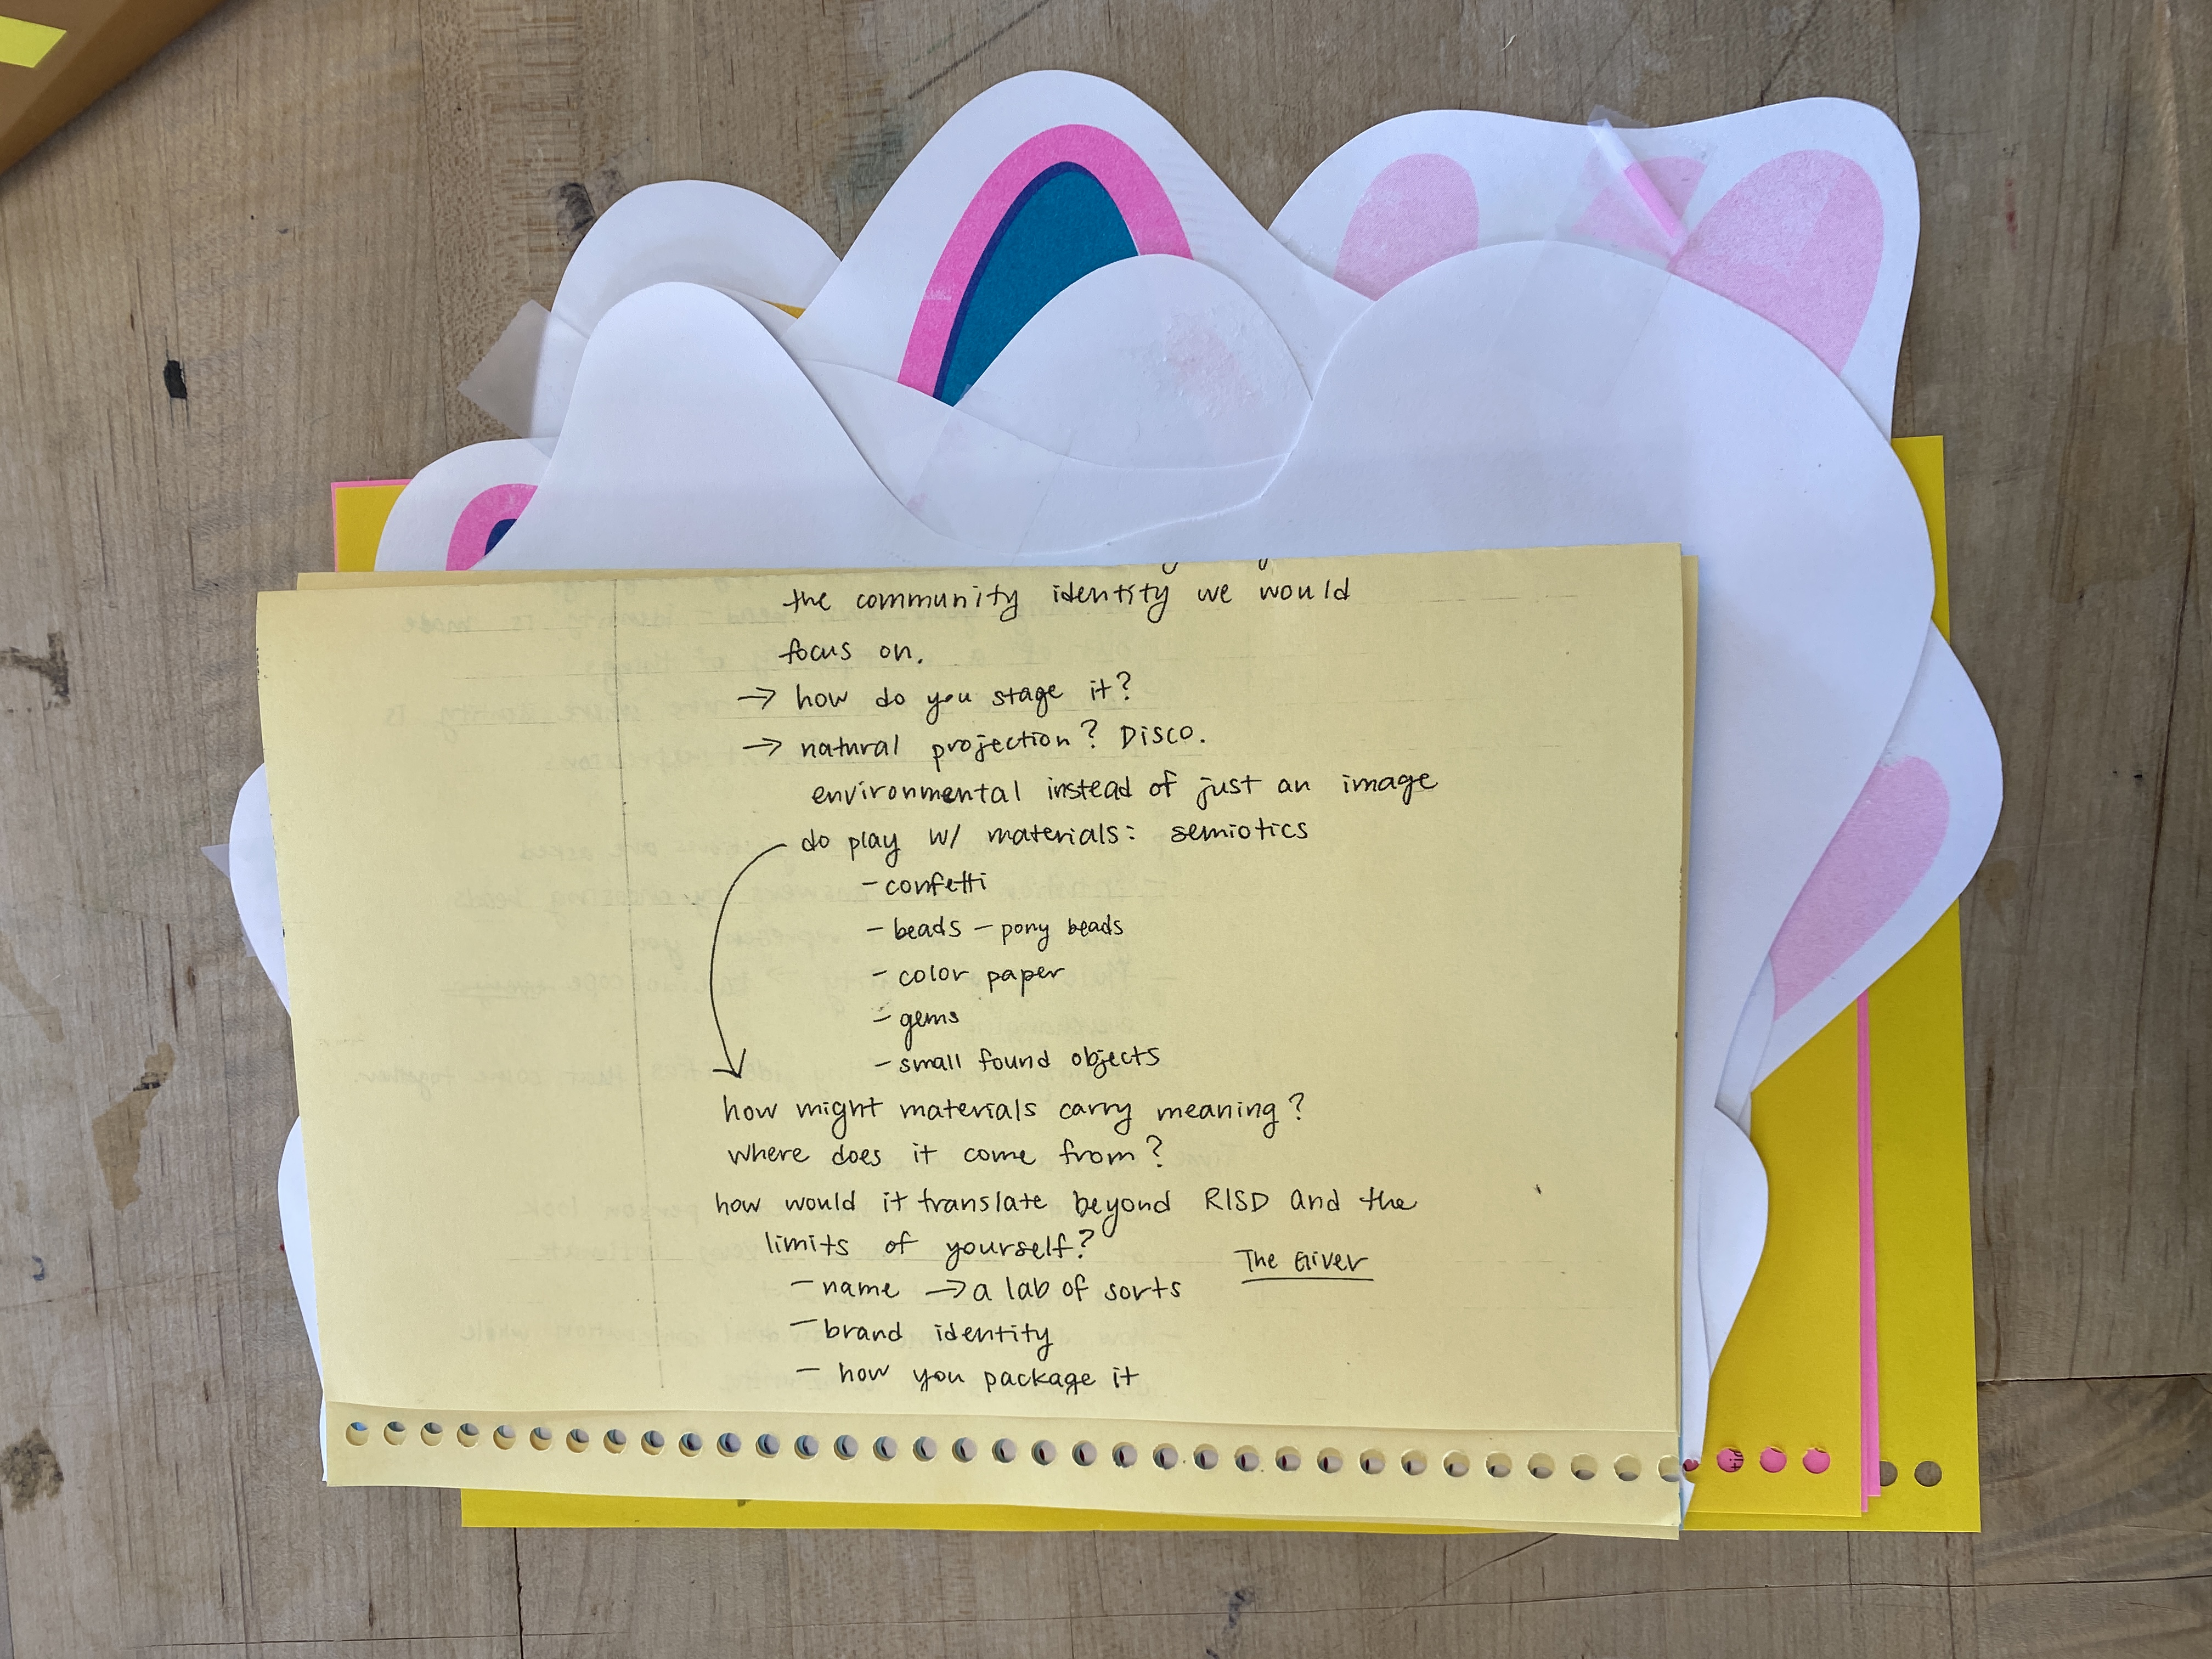 the community identity we would
focus on.
→ how do you stage it?
→ natural projection? DISCO.
environmental instead of just an image
do play w/ materials: semiotics
- confetti
- beads - pony beads
- color paper
- gems
- small found objects
how might materials carry meaning?
where does it come from?
how would it translate beyond RISD and the
limits of yourself?
The Giver
- name → a lab of sorts
- brand identity
- how you package it